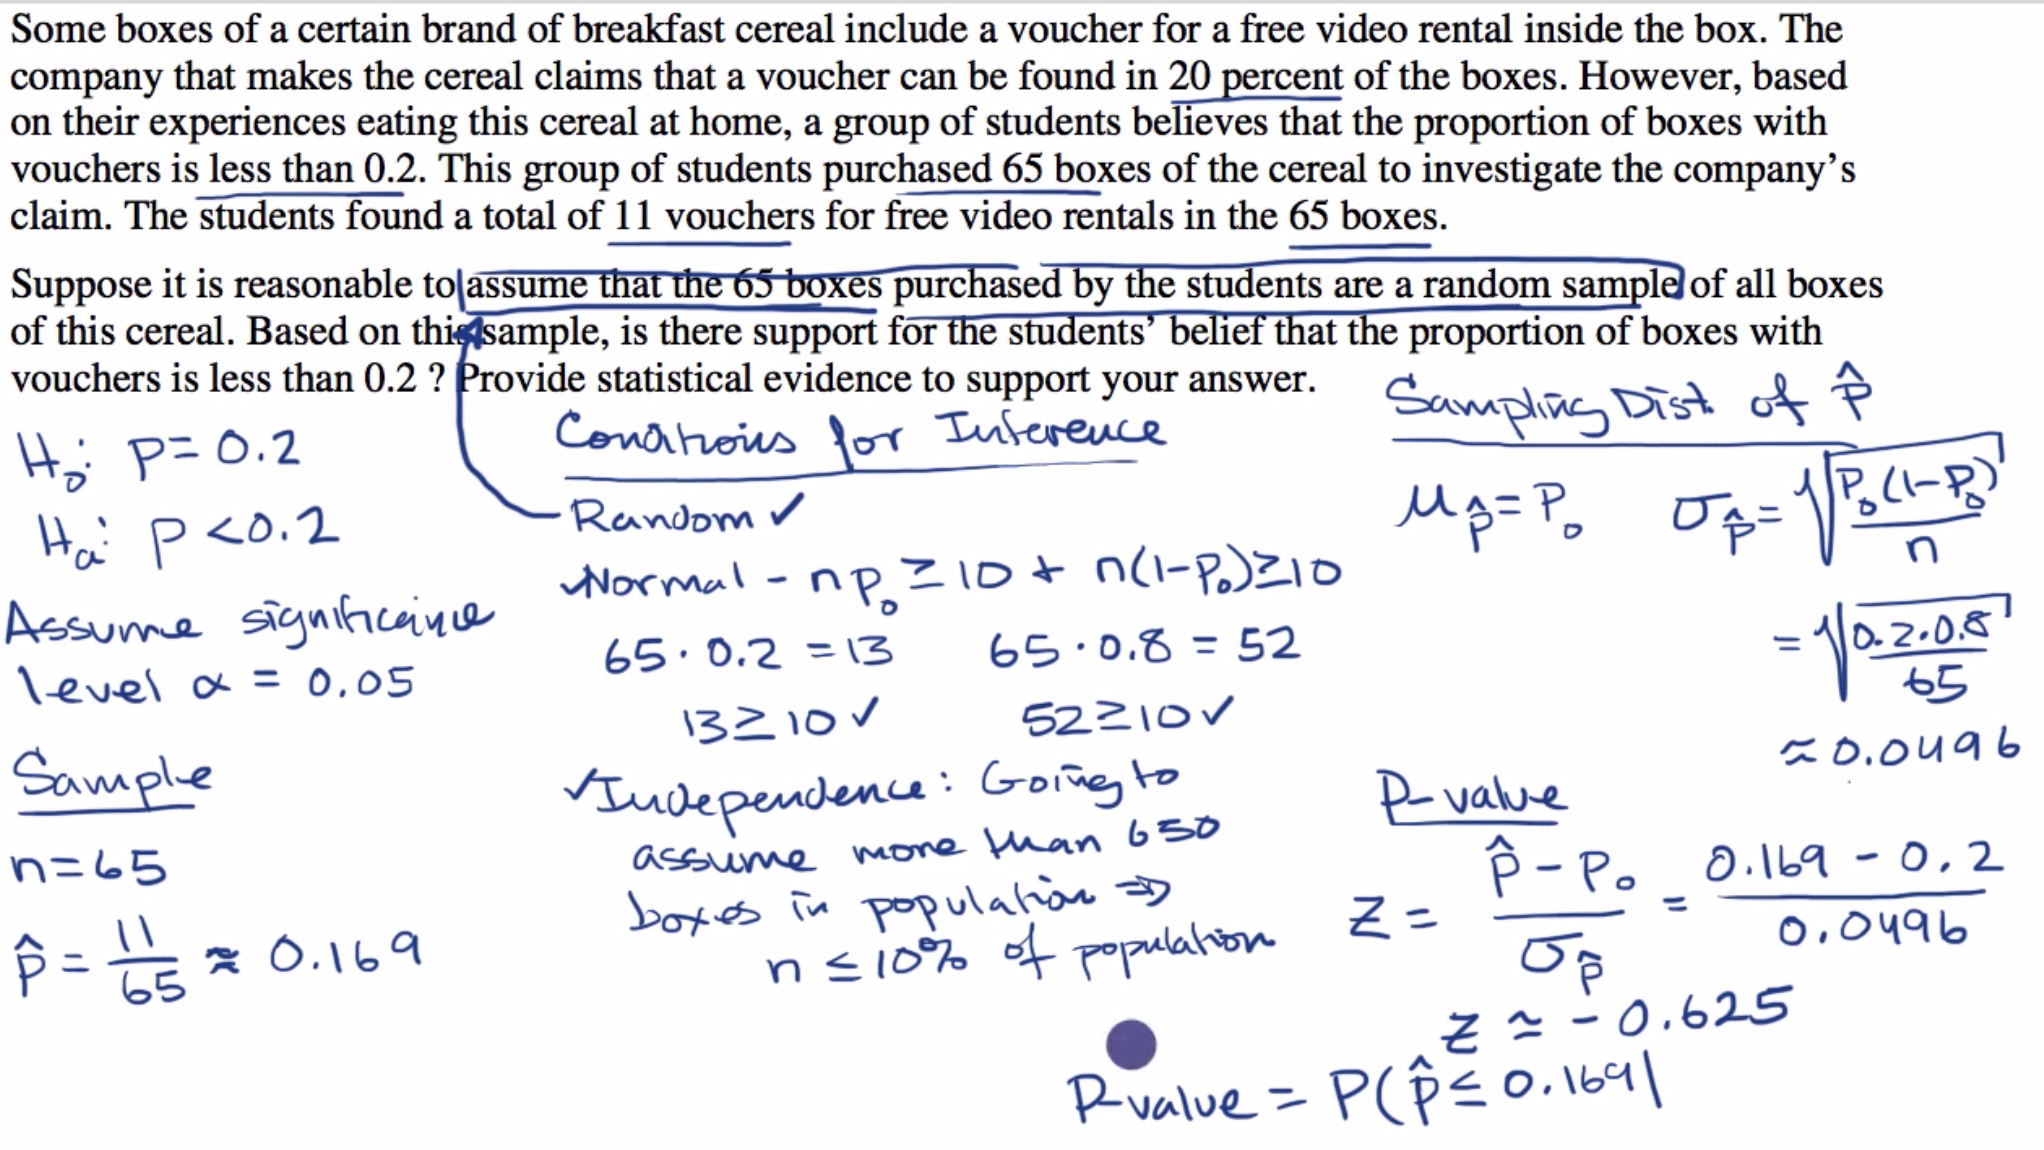 Some boxes of a certain brand of breakfast cereal include a voucher for a free video rental inside the box. The
company that makes the cereal claims that a voucher can be found in 20 percent of the boxes. However, based
on their experiences eating this cereal at home, a group of students believes that the proportion of boxes with
vouchers is less than 0.2. This group of students purchased 65 boxes of the cereal to investigate the company’s
claim. The students found a total of 11 vouchers for free video rentals in the 65 boxes.
Suppose it is reasonable to assume that the 65 boxes purchased by the students are a random sample of all boxes
of this cereal. Based on this sample, is there support for the students’ belief that the proportion of boxes with
vouchers is less than 0.2 ? Provide statistical evidence to support your answer.
H₀: p = 0.2
Hₐ: p < 0.2
Assume significance
level α = 0.05
Sample
n = 65
p̂ = 11/65 ≈ 0.169
Conditions for Inference
Random ✓
✓Normal - np₀ ≥ 10 + n(1-p₀) ≥ 10
65 · 0.2 = 13 65 · 0.8 = 52
13 ≥ 10 ✓ 52 ≥ 10 ✓
✓Independence: Going to
assume more than 650
boxes in population ⇒
n ≤ 10% of population
Sampling Dist. of p̂
μ_p̂ = p₀ σ_p̂ = √(p₀(1-p₀)/n)
= √(0.2·0.8/65)
≈ 0.0496
P-value
z = (p̂ - p₀)/σ_p̂ = (0.169 - 0.2)/0.0496
z ≈ -0.625
P-value = P(p̂ ≤ 0.169|